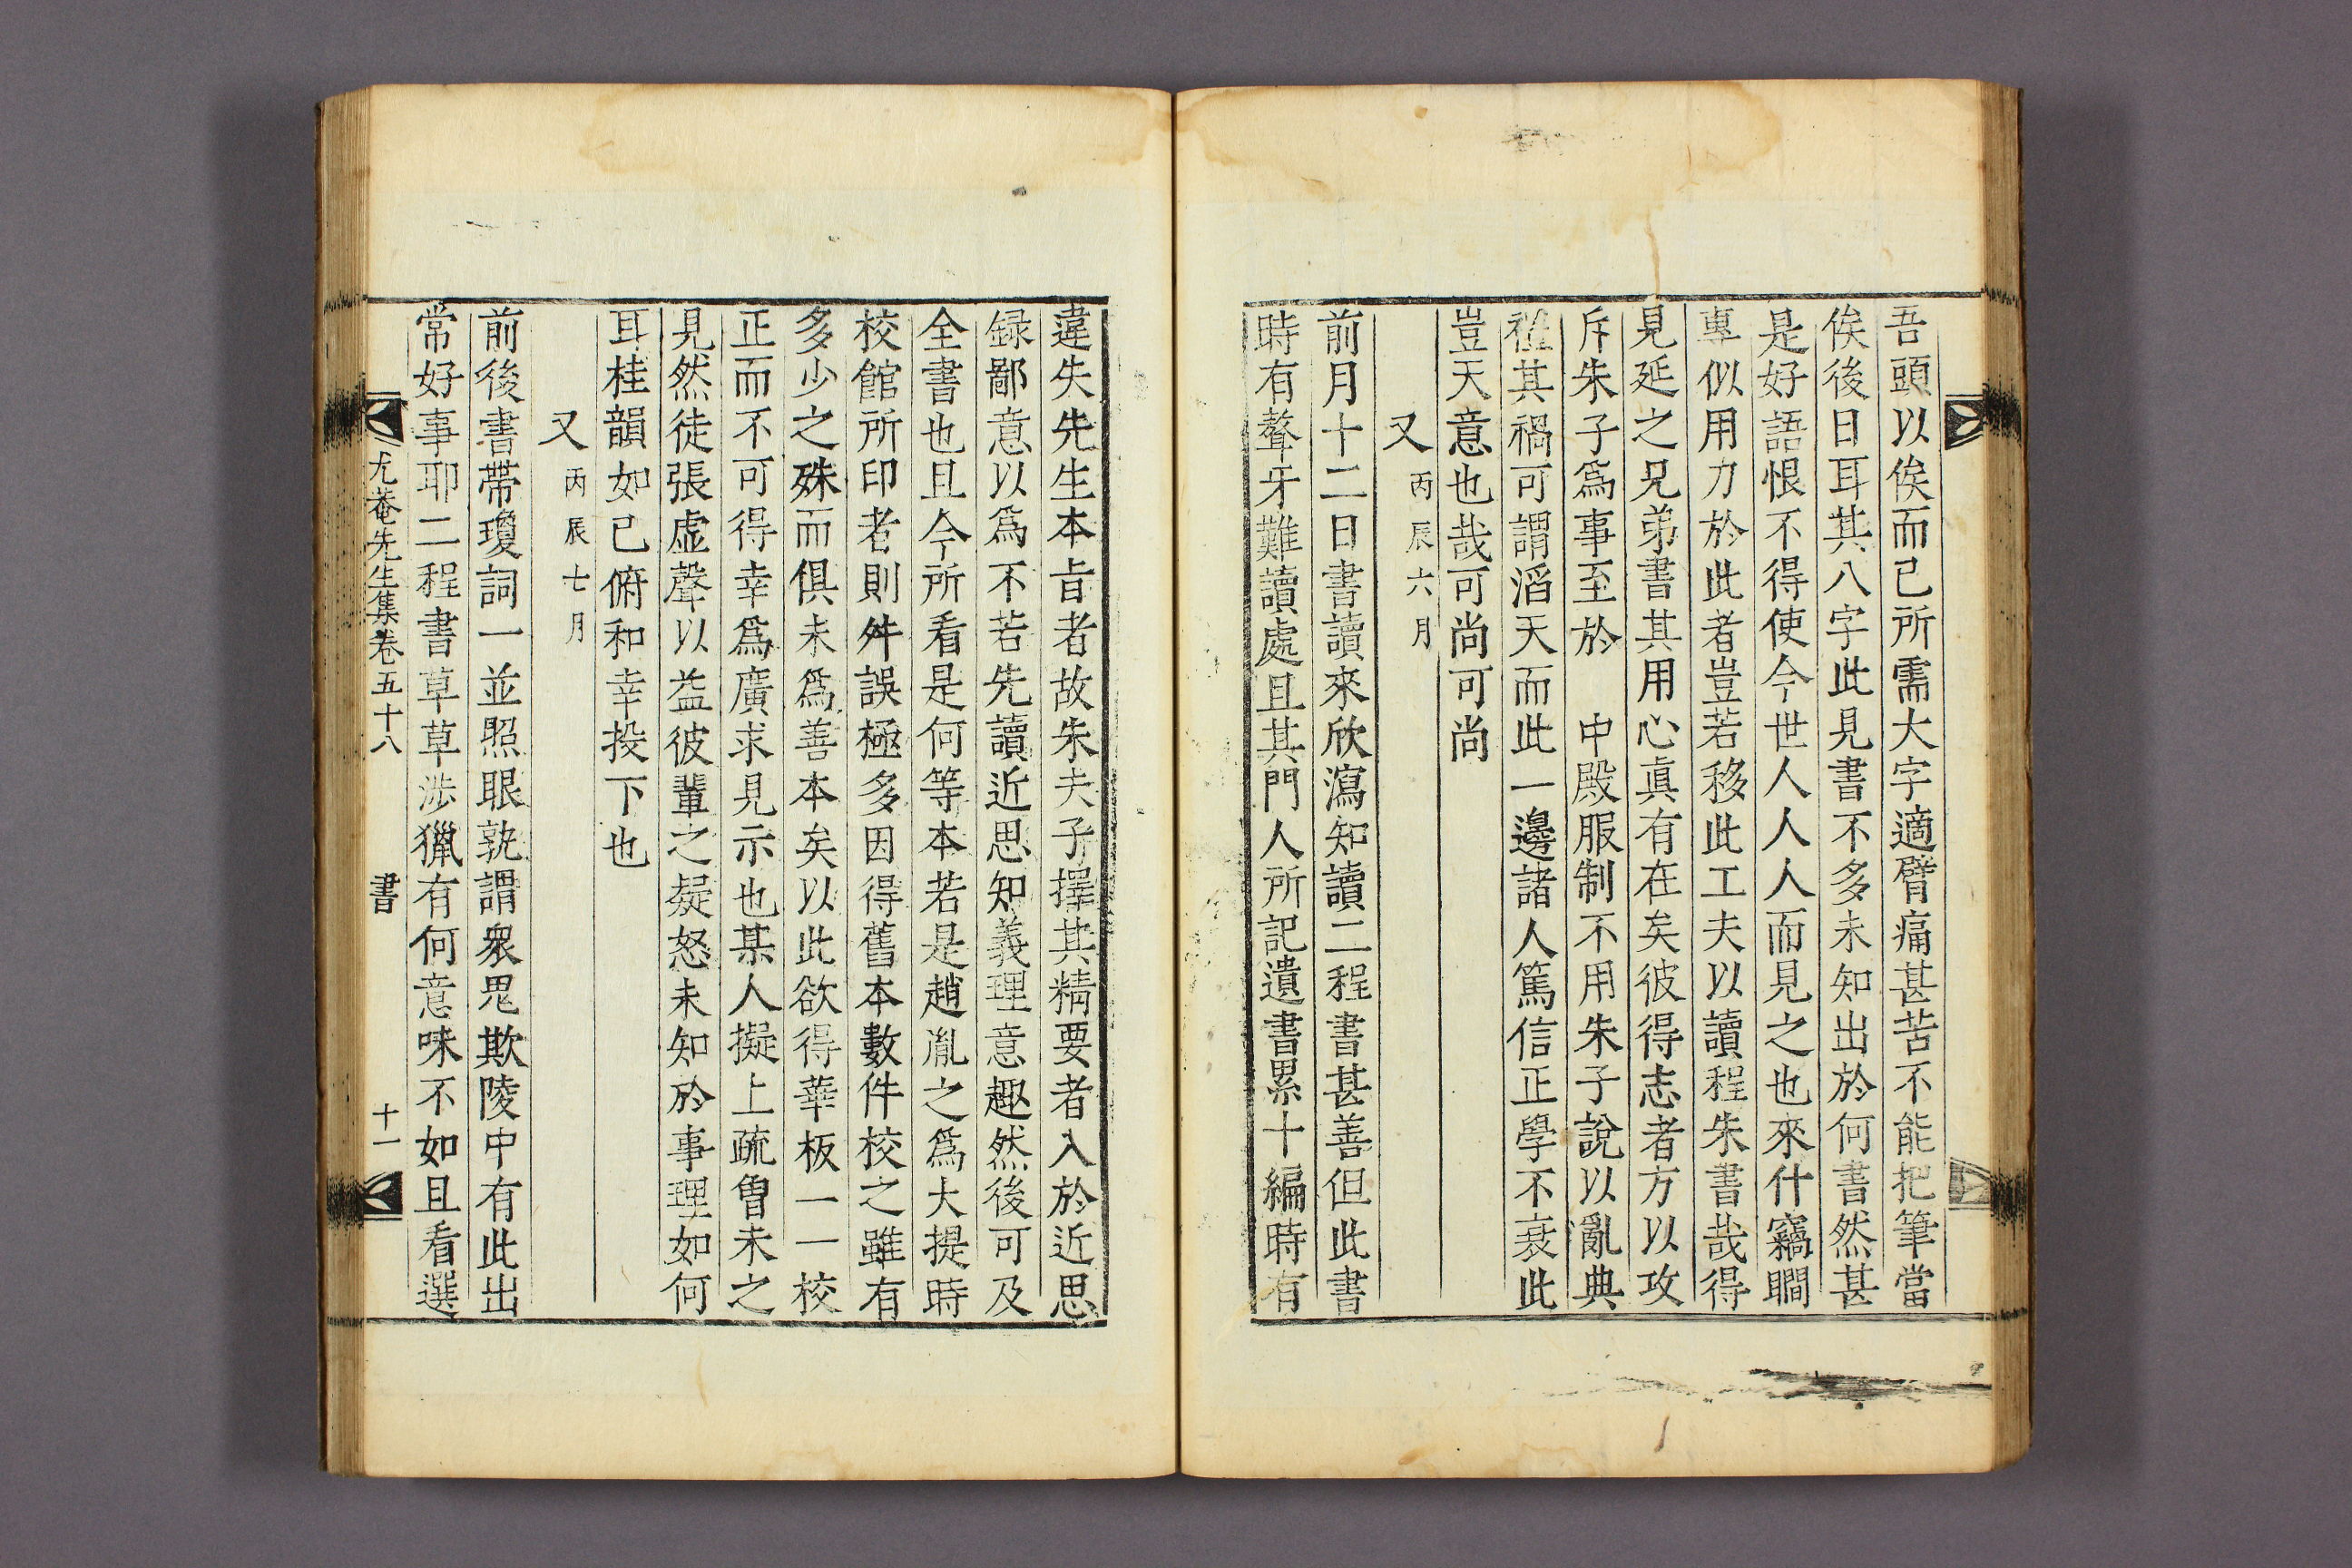 吾頭以俟而已所需大字適臂痛甚苦不能把筆當
俟後日耳其八字此見書不多未知出於何書然甚
是好語恨不得使今世人人人而見之也來什竊瞷
專似用力於此者豈若移此工夫以讀程朱書哉得
見延之兄弟書其用心眞有在矣彼得志者方以攻
斥朱子爲事至於　中殿服制不用朱子說以亂典
禮其禍可謂滔天而此一邊諸人篤信正學不衰此
豈天意也哉可尚可尚
又丙辰六月
前月十二日書讀來欣瀉知讀二程書甚善但此書
時有聱牙難讀處且其門人所記遺書累十編時有
違失先生本旨者故朱夫子擇其精要者入於近思
録鄙意以爲不若先讀近思知義理意趣然後可及
全書也且今所看是何等本若是趙胤之爲大提時
校館所印者則舛誤極多因得舊本數件校之雖有
多少之殊而俱未爲善本矣以此欲得華板一一校
正而不可得幸爲廣求見示也某人擬上疏曾未之
見然徒張虛聲以益彼輩之疑怒未知於事理如何
耳桂韻如已俯和幸投下也
又丙辰七月
前後書帶瓊詞一並照眼孰謂衆鬼欺陵中有此出
常好事耶二程書草草涉獵有何意味不如且看選
尤菴先生集卷五十八　書　十一